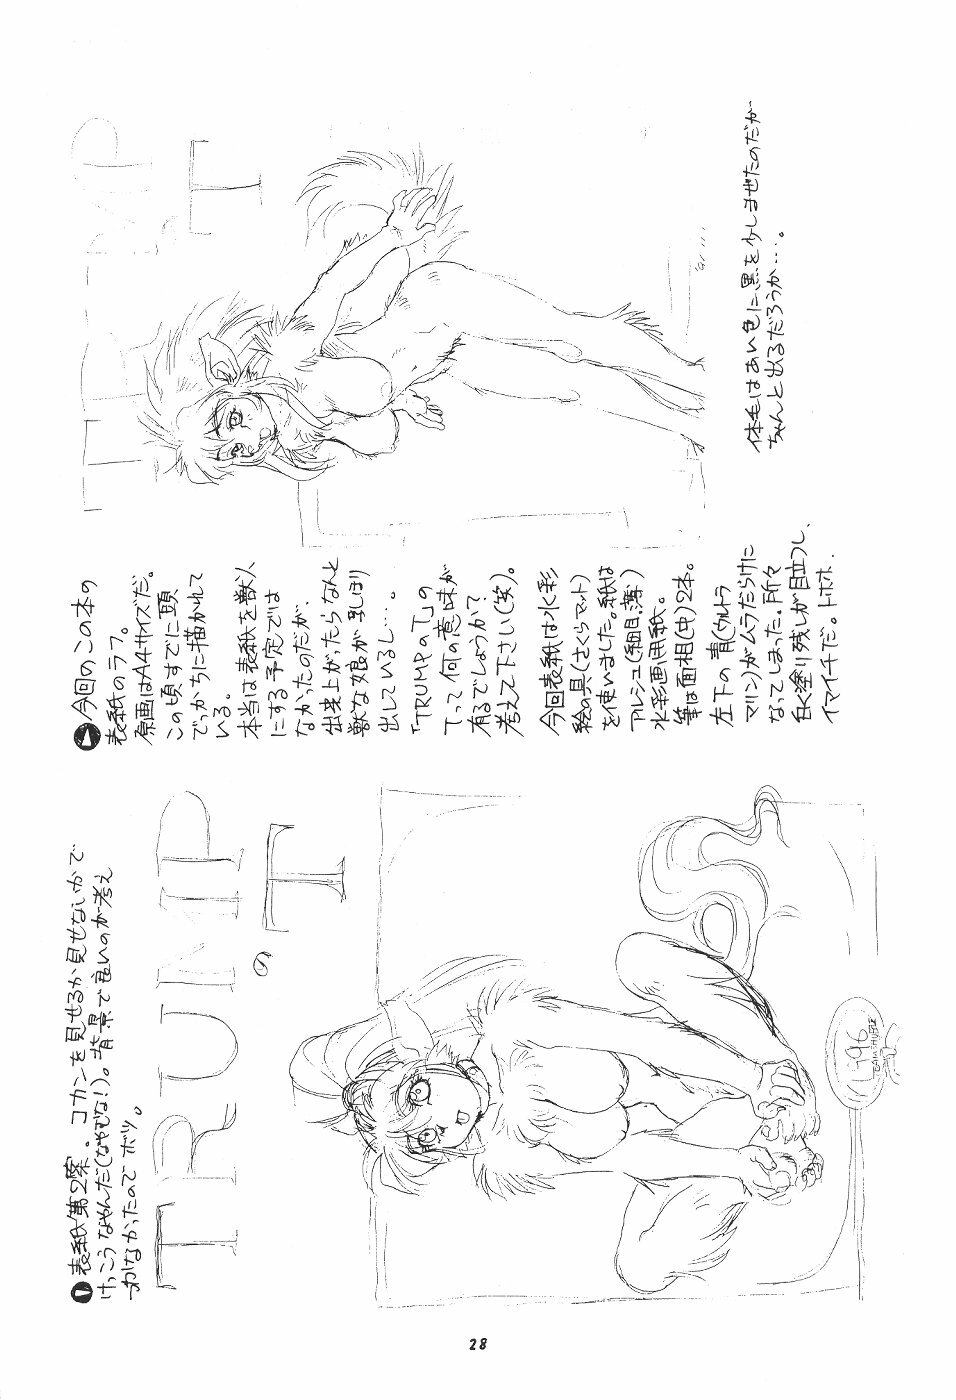 TRUMP
の
T
❶表紙第2案。コカンを見せるか見せないかで
けっこうなやんだ(なやむな!)。背景で良いのが考え
つかなかったのでボツ。
'96
TRUMP
T
今回のこの本の
表紙のラフ。
原画はA4サイズだ。
この頃すでに頭
でっかちに描かれて
いる。
本当は表紙を獣人
にする予定では
なかったのだが、
出来上がったらなんと
獣な娘が乳ほり
出しているし…。
「TRUMPのT」の
Tって何の意味が
有るでしょうか?
考えて下さい(笑)。
今回表紙は水彩
絵の具(さくらマット)
を使いました。紙は
アルシュ(細目、薄)
水彩画用紙。
筆は面相(中)2本。
左下の青(ウルトラ
マリン)がムラだらけに
なってしまった。所々
白く塗り残しが目立つし、
イマイチだ。トホホ.
体毛はあい色に、黒を少しまぜたのだが
ちゃんと出るだろうか…。
28